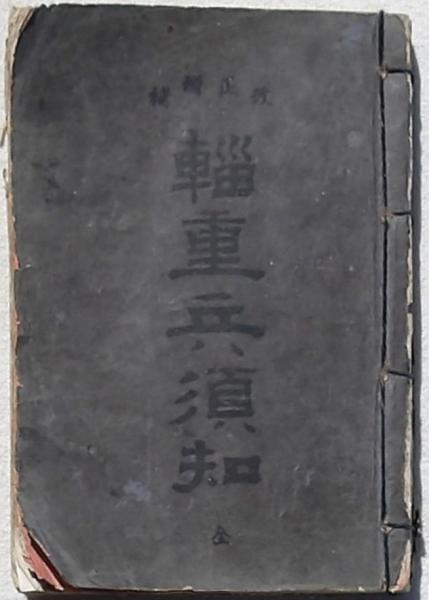 改正増補
輜重兵須知
全